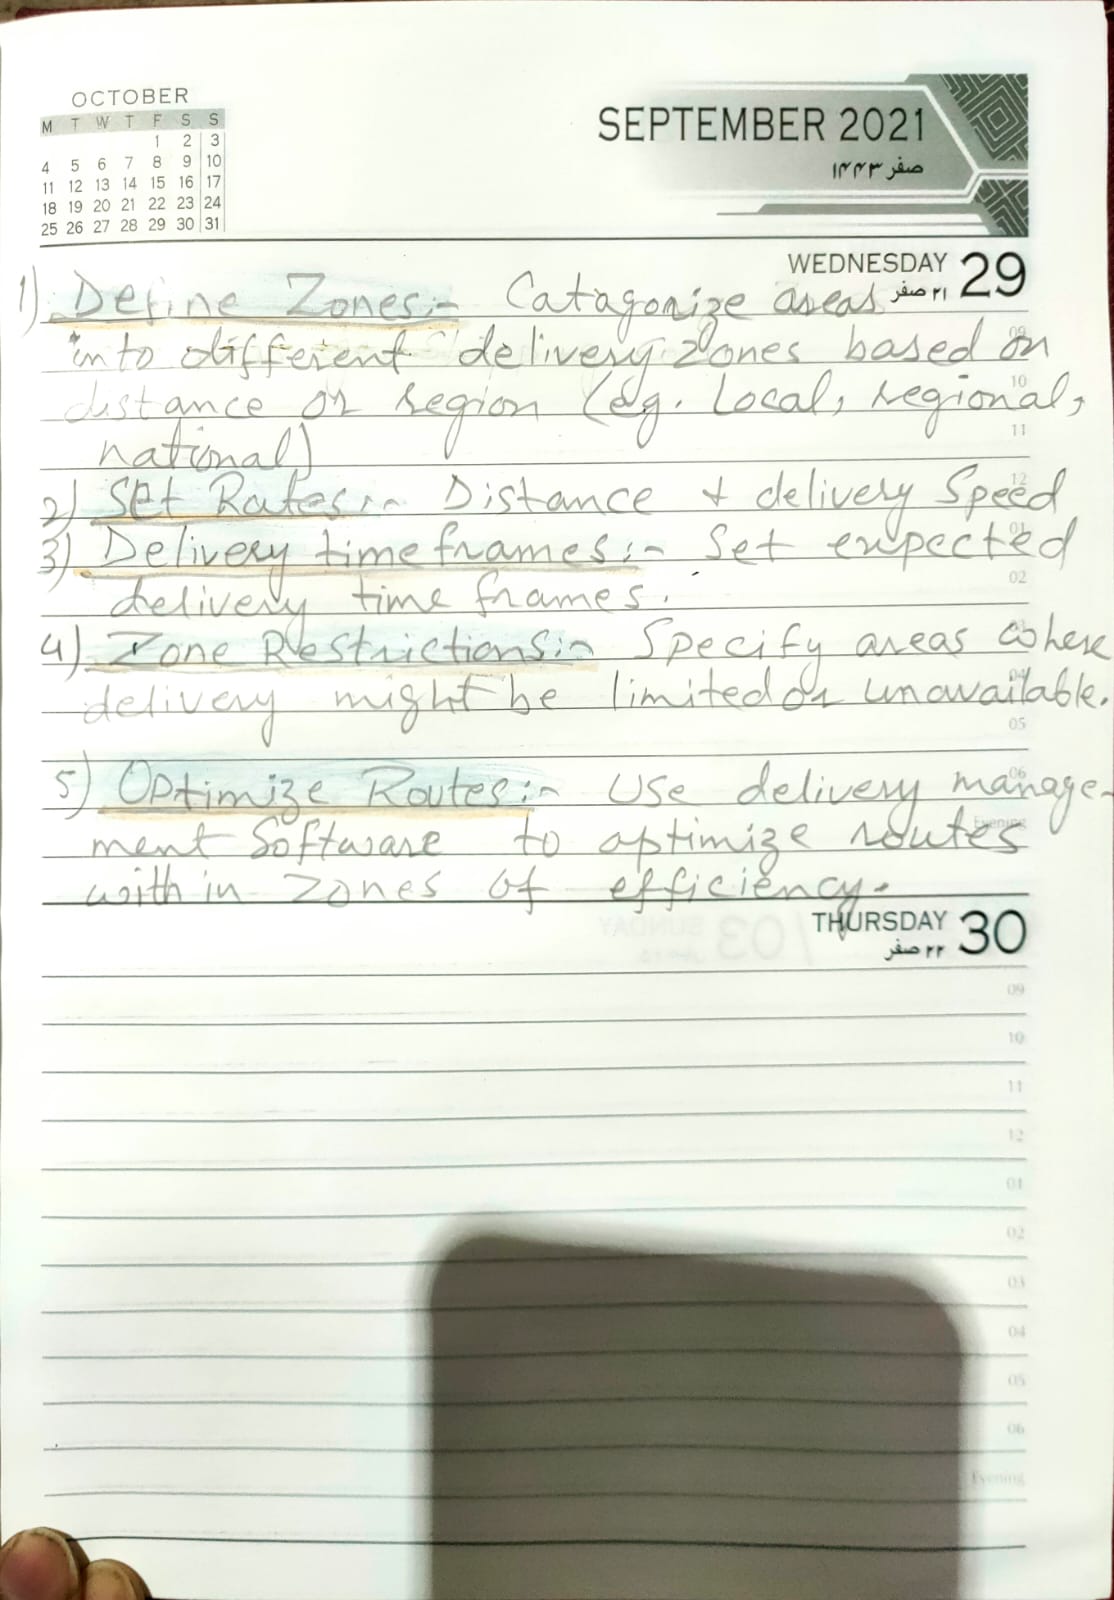 OCTOBER
M T W T F S S
1 2 3
4 5 6 7 8 9 10
11 12 13 14 15 16 17
18 19 20 21 22 23 24
25 26 27 28 29 30 31
SEPTEMBER 2021
صفر ١٤٤٣
WEDNESDAY 29
٢١ صفر
1) Define Zones:- Catagorize areas
into different delivery zones based on
distance or region (eg. Local, regional,
national)
2) Set Rates:- Distance & delivery Speed
3) Delivery time frames:- Set expected
delivery time frames.
4) Zone Restrictions:- Specify areas where
delivery might be limited or unavailable.
5) Optimize Routes:- Use delivery manage-
ment Software to optimize routes
with in zones of efficiency.
09
10
11
12
01
02
04
05
06
Evening
THURSDAY 30
٢٢ صفر
09
10
11
12
01
02
03
04
05
06
Evening